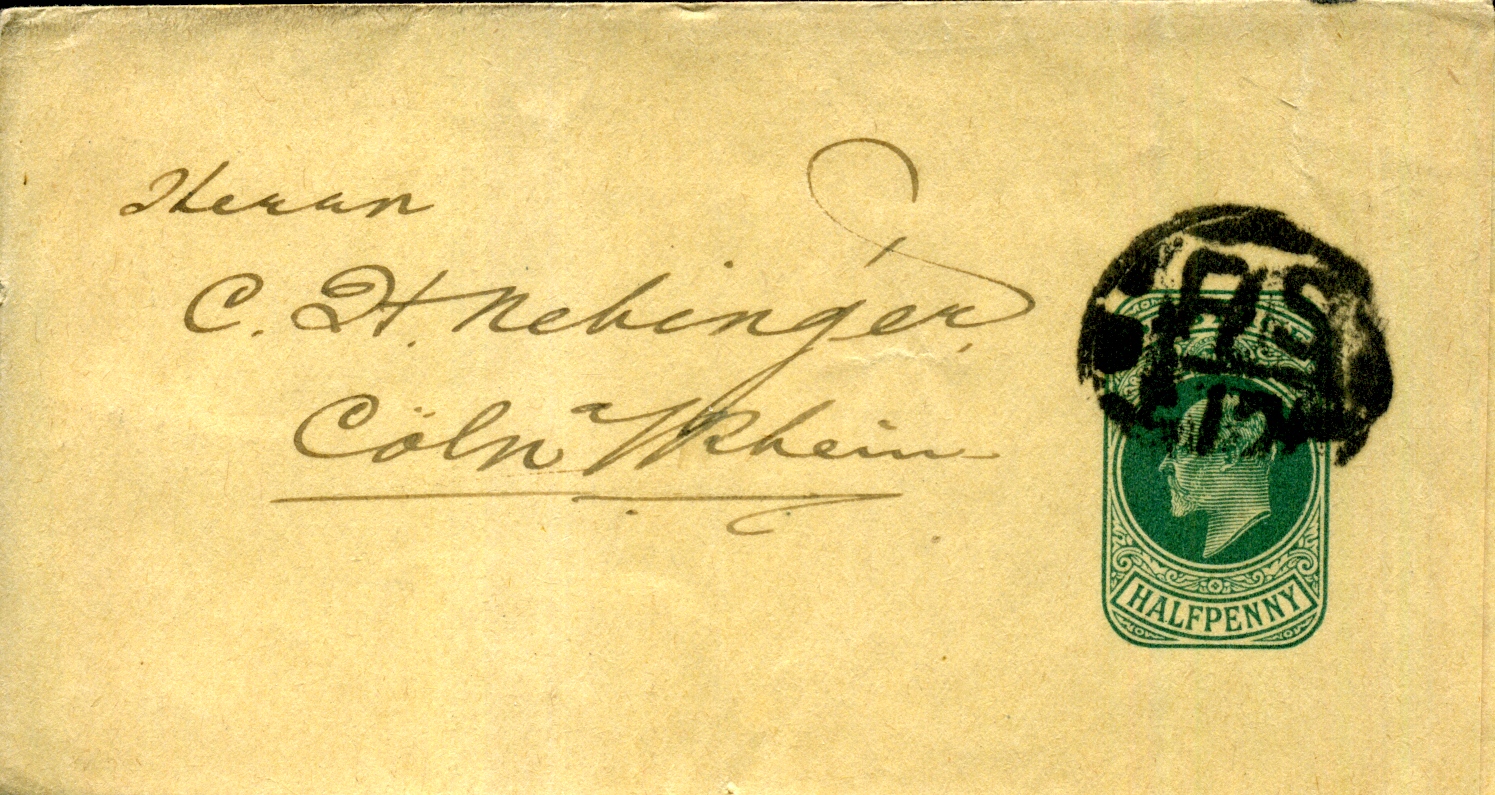 Herrn
C. H. Nebinger,
Cöln a/Rhein
HALFPENNY